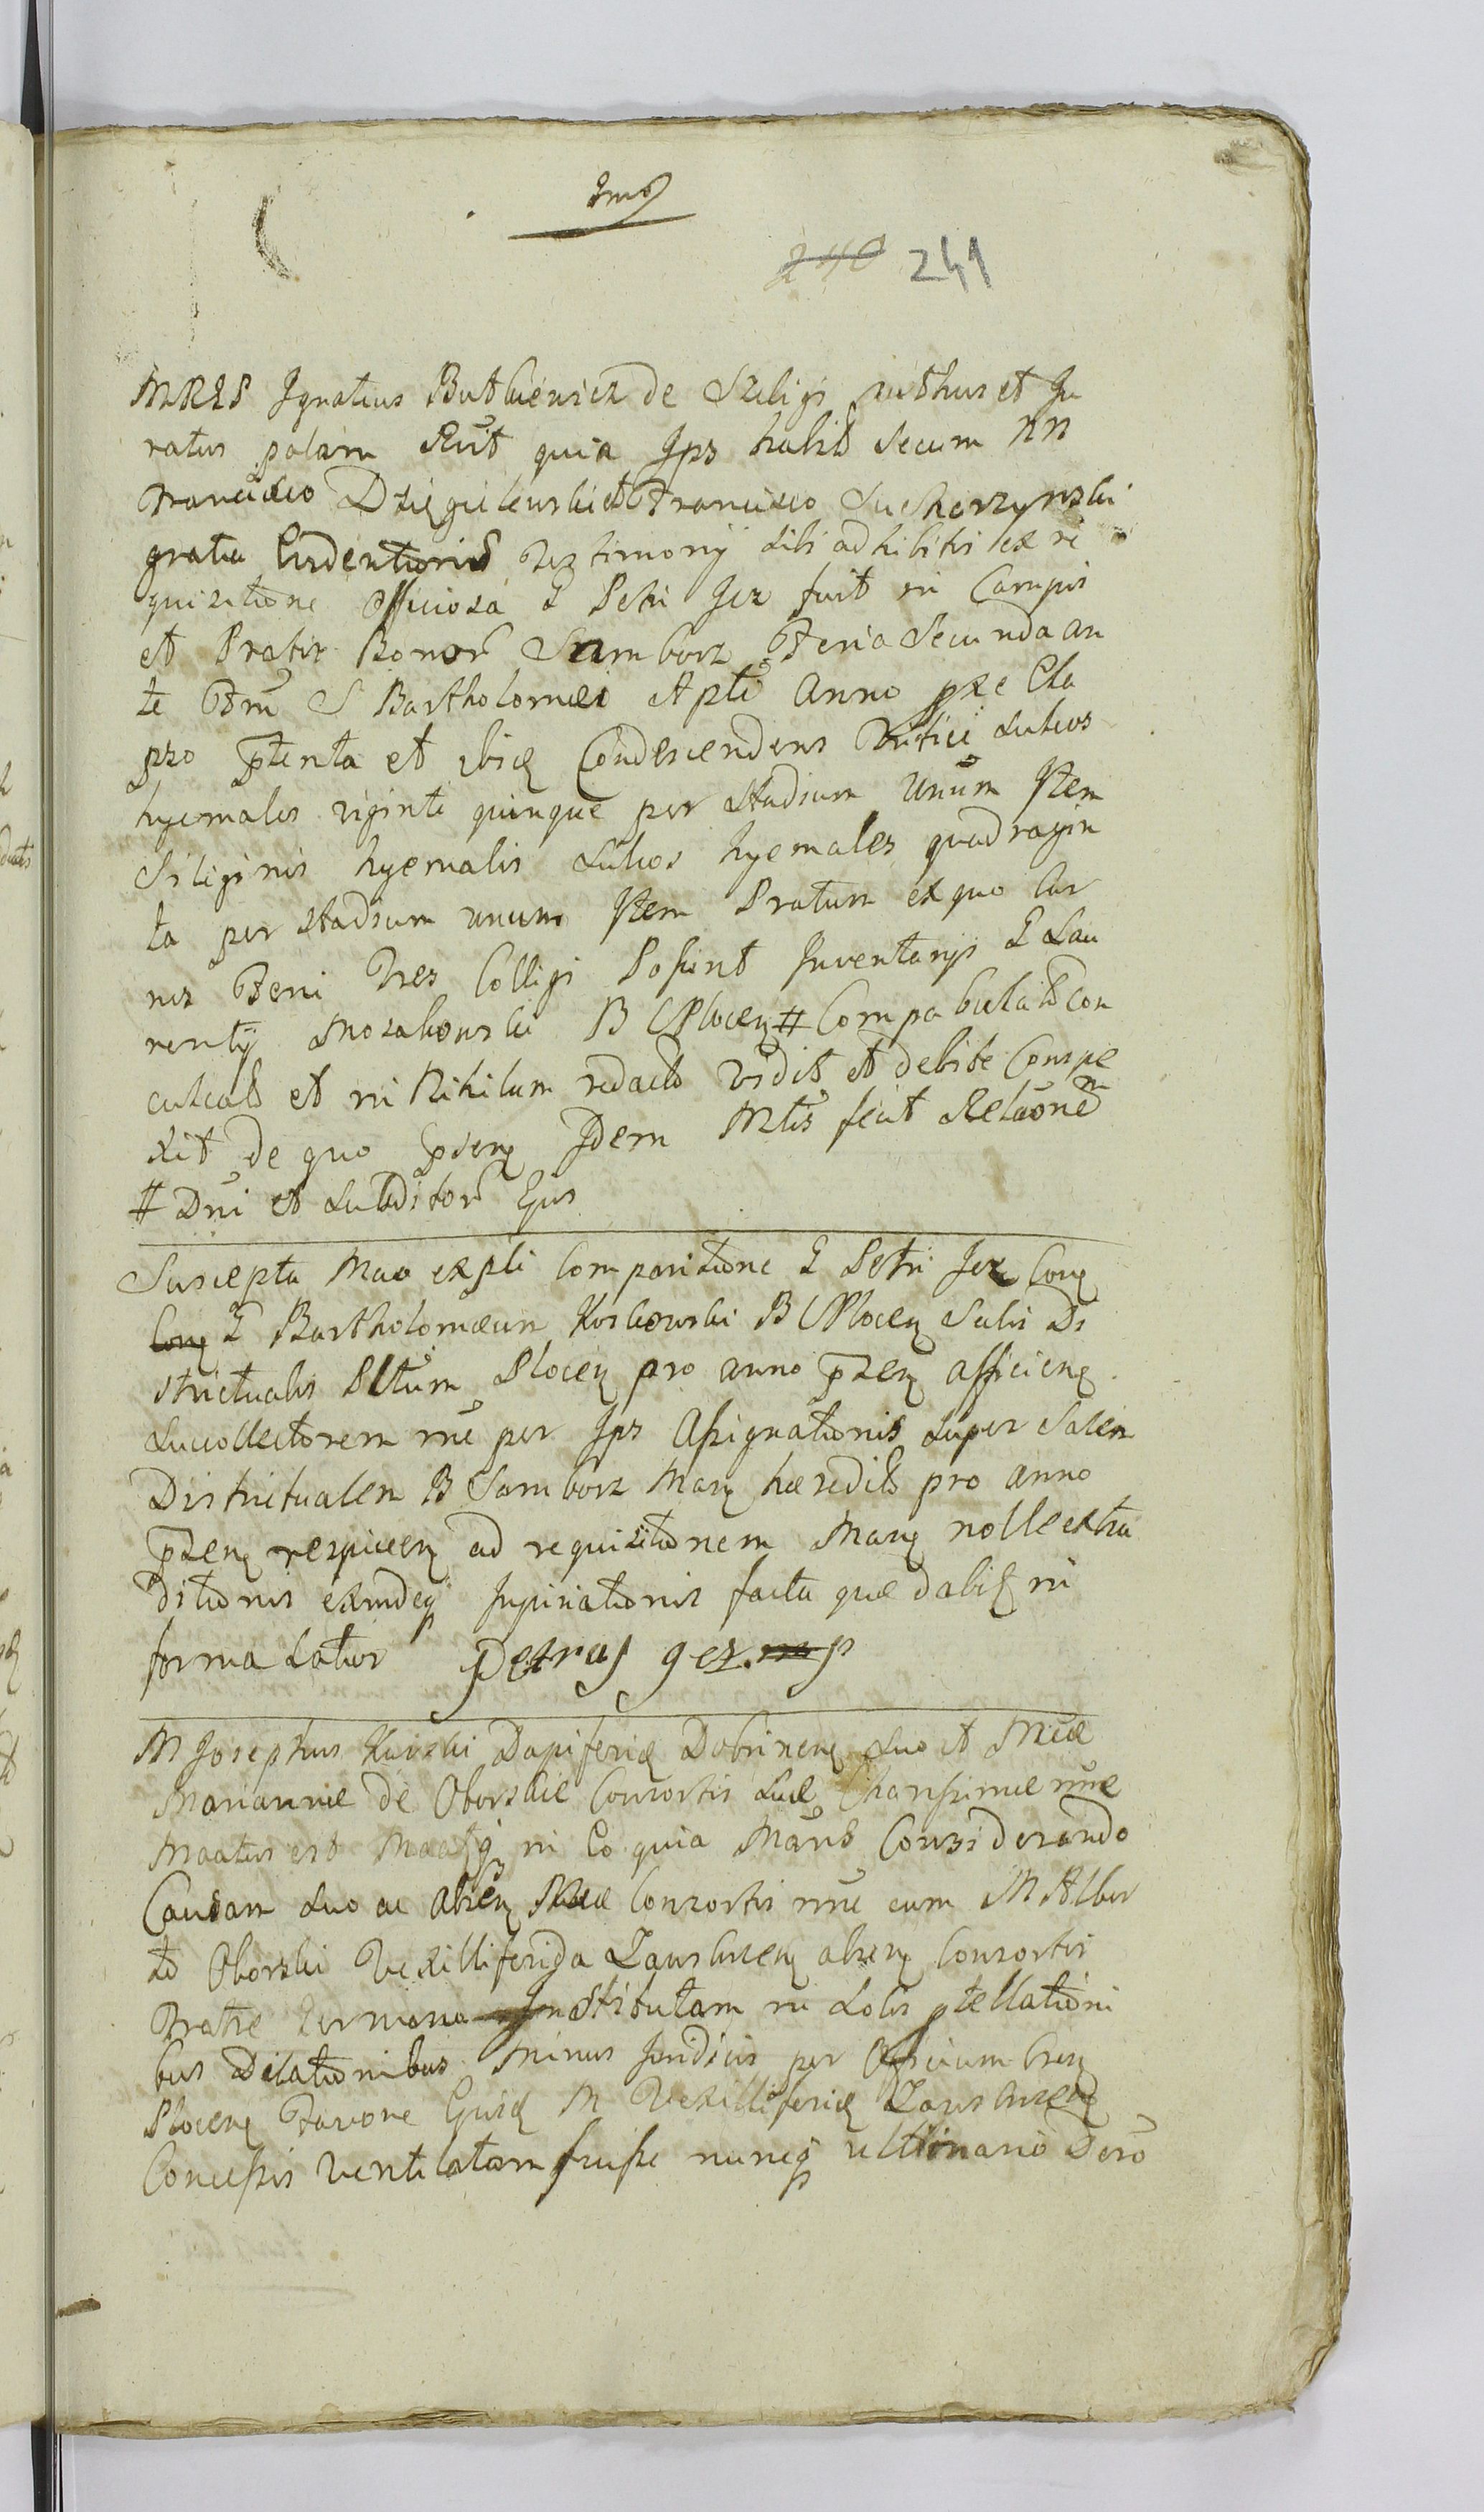 240 241
MRLS Ignatius Butkiewicz de Szeligi authus et Ju
ratus palam Rūit quia Ips habitt Secum NN
Francisco Dzięgielewski et Francisco Sucharzynski
gratia Evidentioris Testimonij sibi adhibitis ex re
quisitione officiosa G Petri Jez fuit in Campis
et Pratis Bonor Szamborz Feria Secunda an
te Fm S Bartholomæi Aptī Anno præ Ela
pso ptenta et ibiq Condescendens Tritici sulcos
hyemales viginti quinque per stadium unum Item
Siliginis hyemalis sulcos hyemales quadragin
ta per stadium unum Item Pratum ex quo Cur
rus Feni Tres Colligi Possunt Inventarijs G Lau
rentij Mozakowski B CPlocen # Compabulat con
culcat et in Nihilum redact vidit et debite Conspe
xit de quo psens Idem Mtis fecit Relaōnem
# Dni et Subditor Ejus
Suscepta Mao expli Comparitione G Petri Jez Cong
Cong G Bartholomæum Koskowski B CPlocen Salis Di
strictualis Pltūm Plocen pro anno pzen afficien
Succollectorem mē per Ips Assignationis super Salem
Districtualem B Samborz Man hæredit pro anno
pzen respicien ad requisitionem Man nolle extra
ditionis exindeq Inspiriationis facta quæ dabit in
forma Latior Petrus Jez mp
M Josephus Kurski Dapiferid Dobrinen suo et Micæ
Mariannæ de Oborskie Consortis suæ Charissimæ nnē
Maatus est Maatq in Eo quia Māns Considerando
Causam suo ac absen Micæ Consortis nnē cum M Alber
to Oborski Vexilliferida Zawskrzen absen Consortis
Fratre Germano Institutam in Solis ptellationi
bus Dilationibus Minus Juridicis per Officium Cren
Plocen Favore Ejusd M Vexilliferid Zawskrzen
Concessis Ventilatam fuisse nuncq ultimario Dero